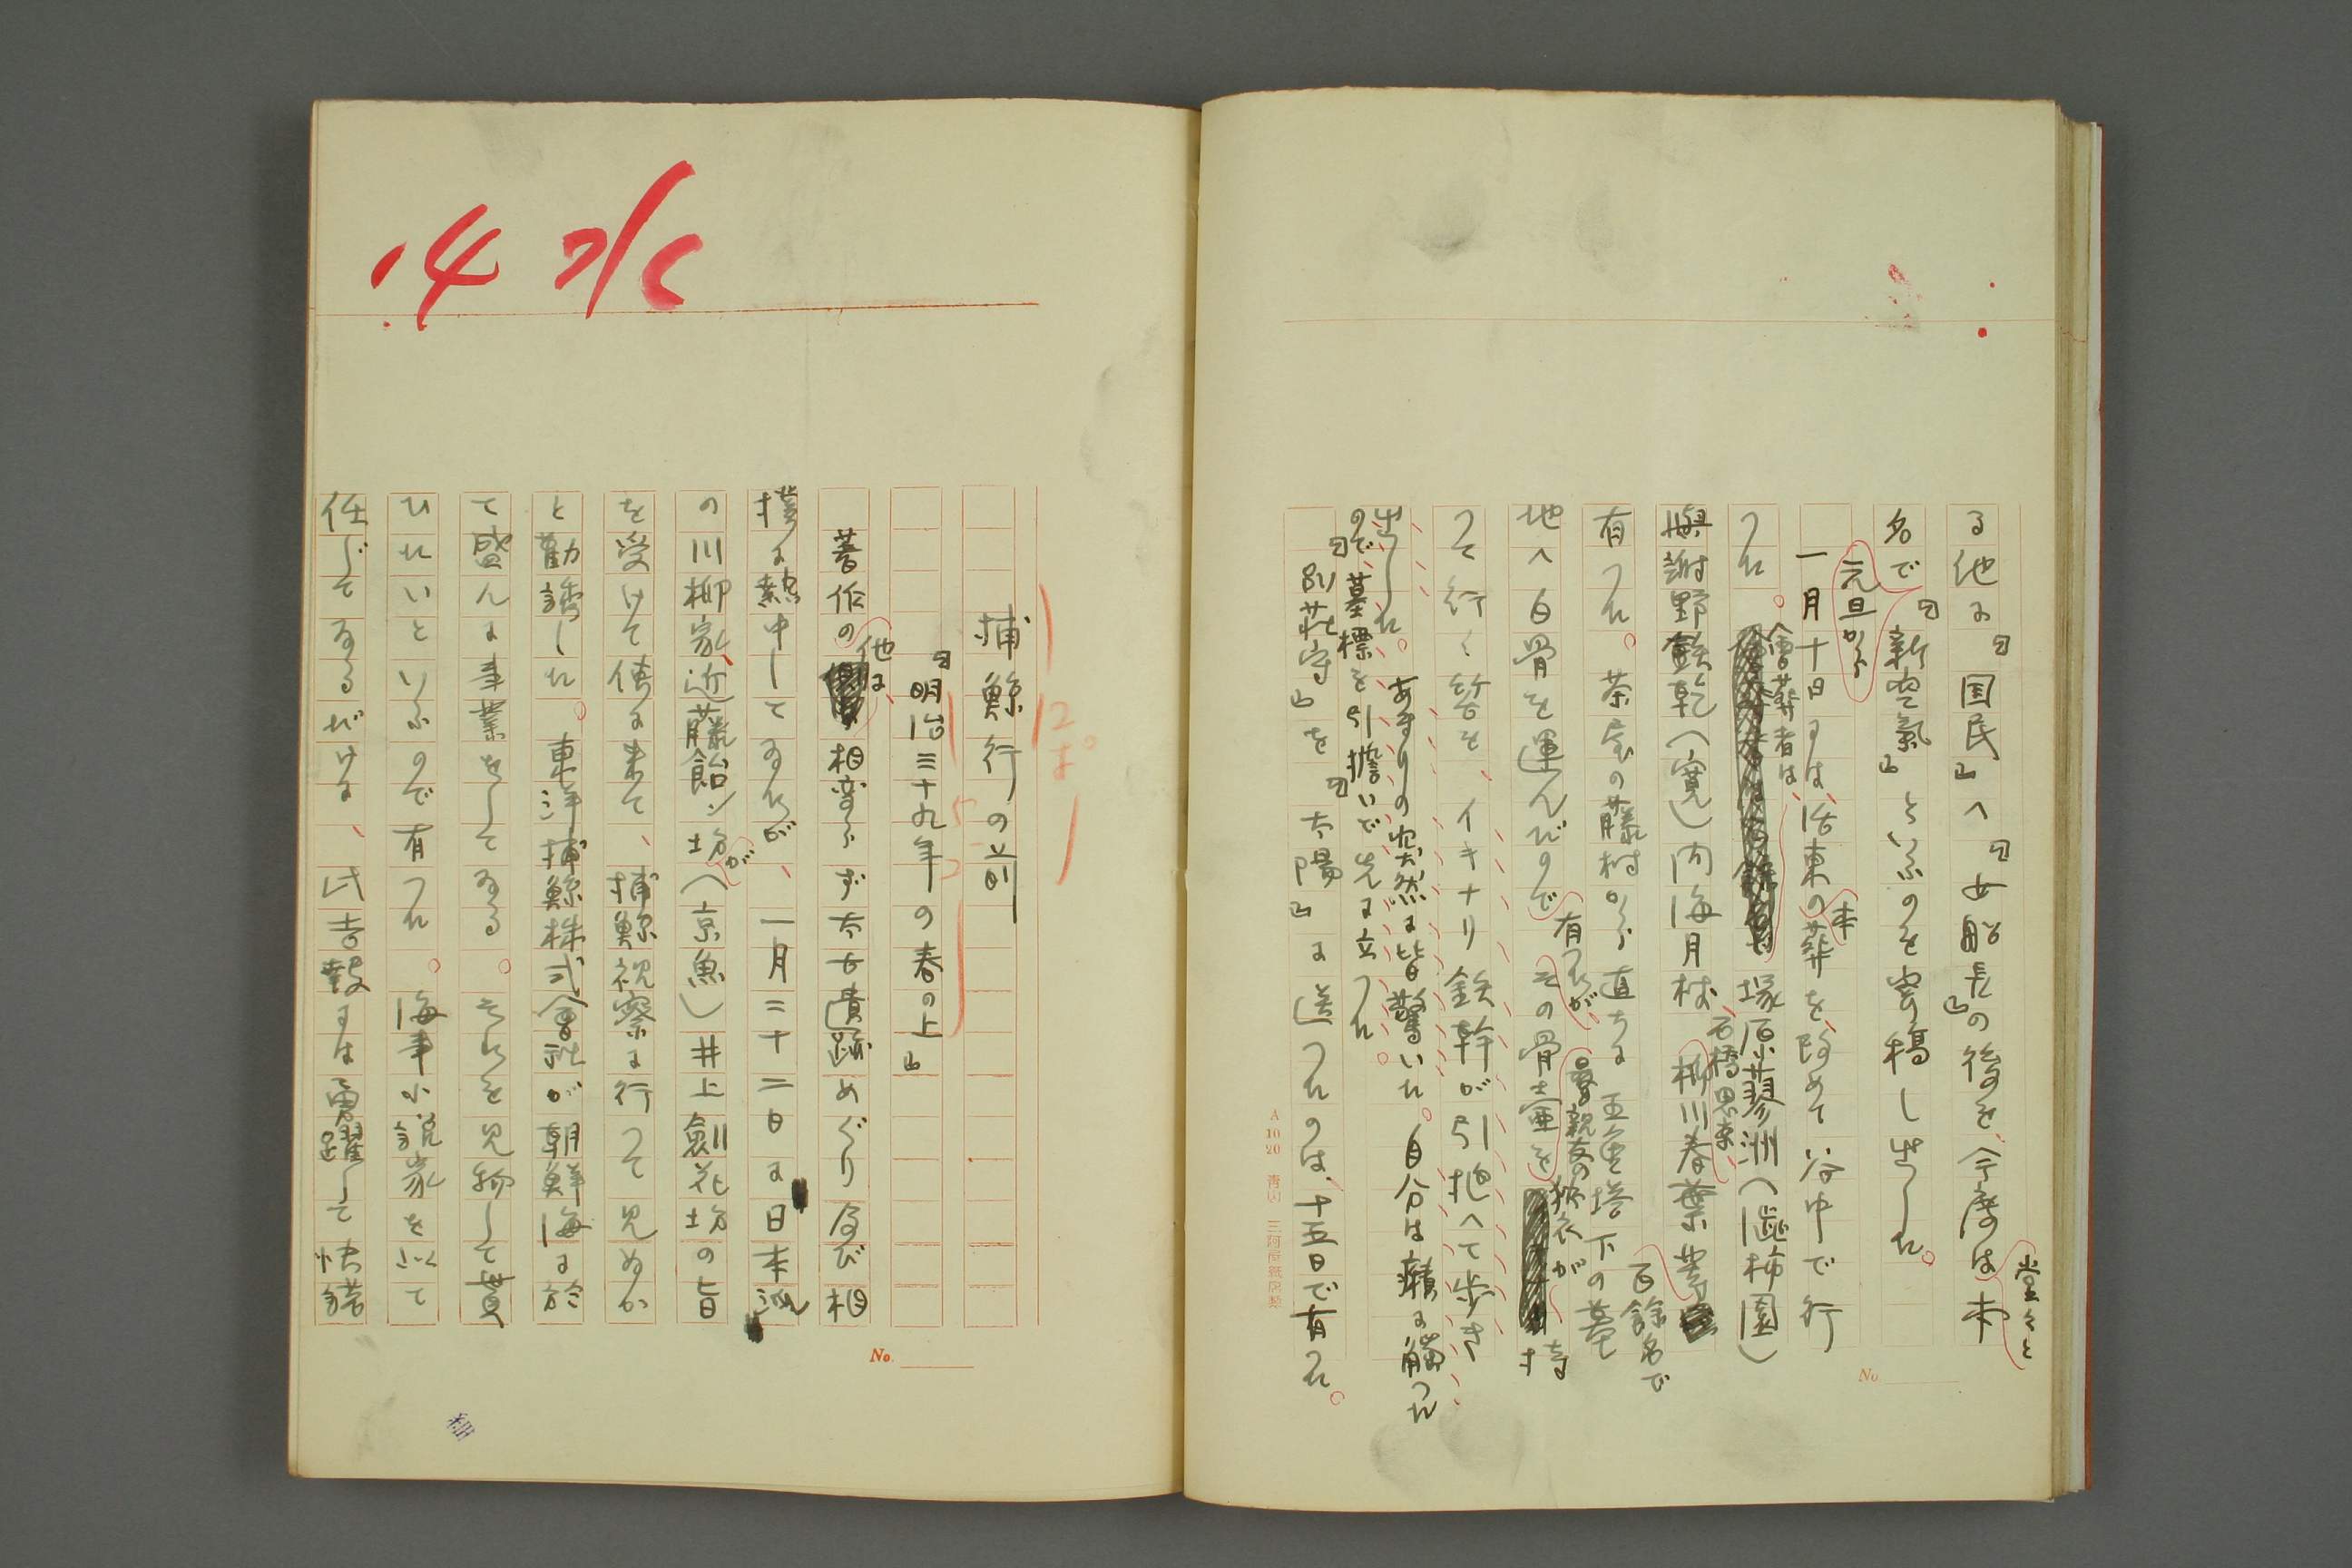 る他に『国民』へ『女船長』の後を、今度は堂々と本
名で『新空氣』といふのを元旦から寄稿し出した。
一月十日には、活東の本葬を、改めて谷中で行
つた。會葬者は、塚原蓼洲(澁柿園)
與謝野鉄乾(寛)内海月杖、石橋思案、柳川春葉等百餘名で
有つた。茶屋の藤村から直ちに五重塔下の墓
地へ白骨を運んだので有つたが、その骨壷を最親友の狐衣が持
つて行く筈を、イキナリ鉄幹が引抱へて歩き
出した。あまりの突然に皆驚いた。自分は癪に觸つた
ので、墓標を引擔いで先に立つた。
『別荘守』を『太陽』に送つたのは、十五日で有た。
A 10 20
No.
14
捕鯨行の前
12ポ
『明治三十九年の春の上』
著作の他に、相変らず太古遺跡めぐり及び相
撲に熱中してゐたが、一月二十二日に日本派
の川柳家、近藤飴ン坊が(京魚)井上劍花坊の旨
を受けて使に来て、捕鯨視察に行つて見ぬか
と勸誘した。東洋捕鯨株式會社が朝鮮海に於
て盛んに事業をしてゐる。それを見物して貰
ひたいといふので有つた。海事小説家を以て
任じてゐるだけに、此壮擧には勇躍して快諾
No.